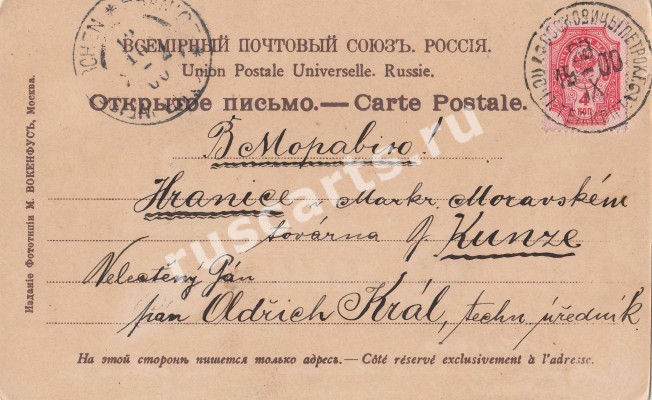 ВСЕМІРНЫЙ ПОЧТОВЫЙ СОЮЗЪ. РОССІЯ.
Union Postale Universelle. Russie.
Открытое письмо. — Carte Postale.
В Моравію!
Hranice v Markr. Moravském
továrna J. Kunze
Velectěný Pán
pán Oldřich Král, techn. úředník
На этой сторонѣ пишется только адресъ. — Côté réservé exclusivement à l'adresse.
Изданіе Фототипіи М. ВОКЕНФУСЪ, Москва.
ruscarts.ru